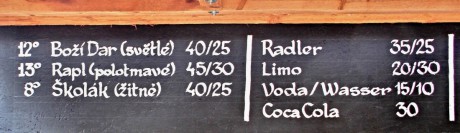 12° Boží Dar (světlé) 40/25
13° Rapl (polotmavé) 45/30
8° Školák (žitné) 40/25
Radler 35/25
Limo 20/30
Voda/Wasser 15/10
CocaCola 30